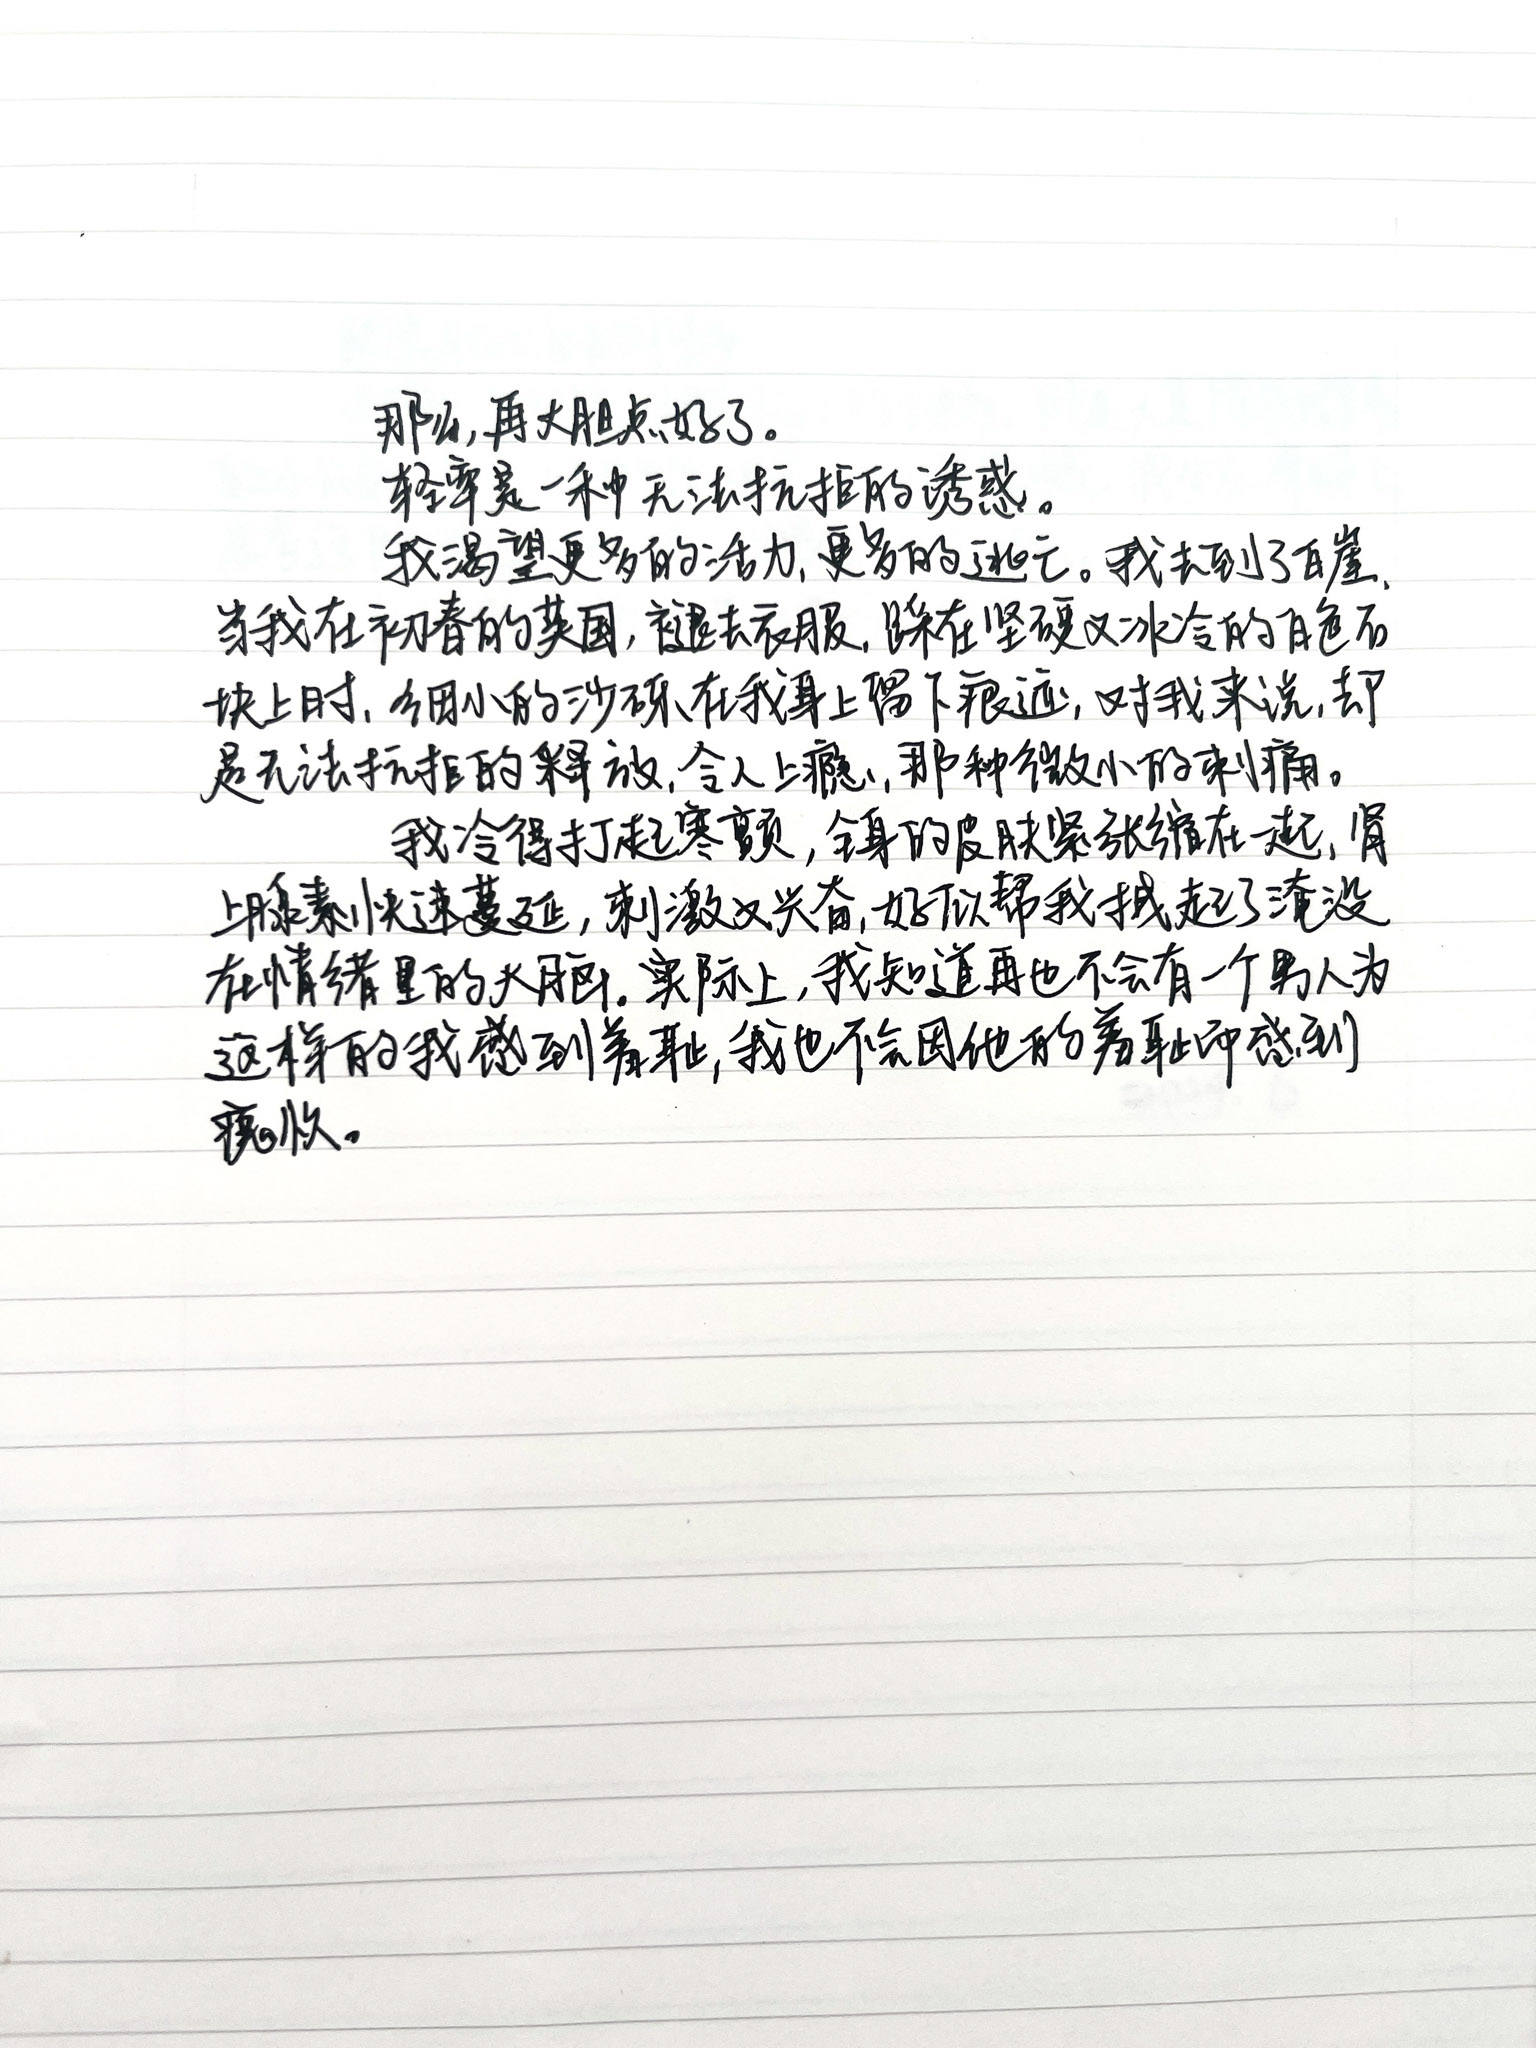 那么，再大胆点好了。
轻率是一种无法抗拒的诱惑。
我渴望更多的活力，更多的逃亡。我去到了白崖，
当我在初春的英国，褪去衣服，踩在坚硬又冰冷的白色石
块上时，细小的沙砾在我身上留下痕迹，对我来说，却
是无法抗拒的释放，令人上瘾，那种微小的刺痛。
我冷得打起寒颤，全身的皮肤紧张缩在一起，肾
上腺素快速蔓延，刺激又兴奋，好似帮我拭起了淹没
在情绪里的大脑。实际上，我知道再也不会有一个男人为
这样的我感到羞耻，我也不会因他的羞耻而感到
疚。